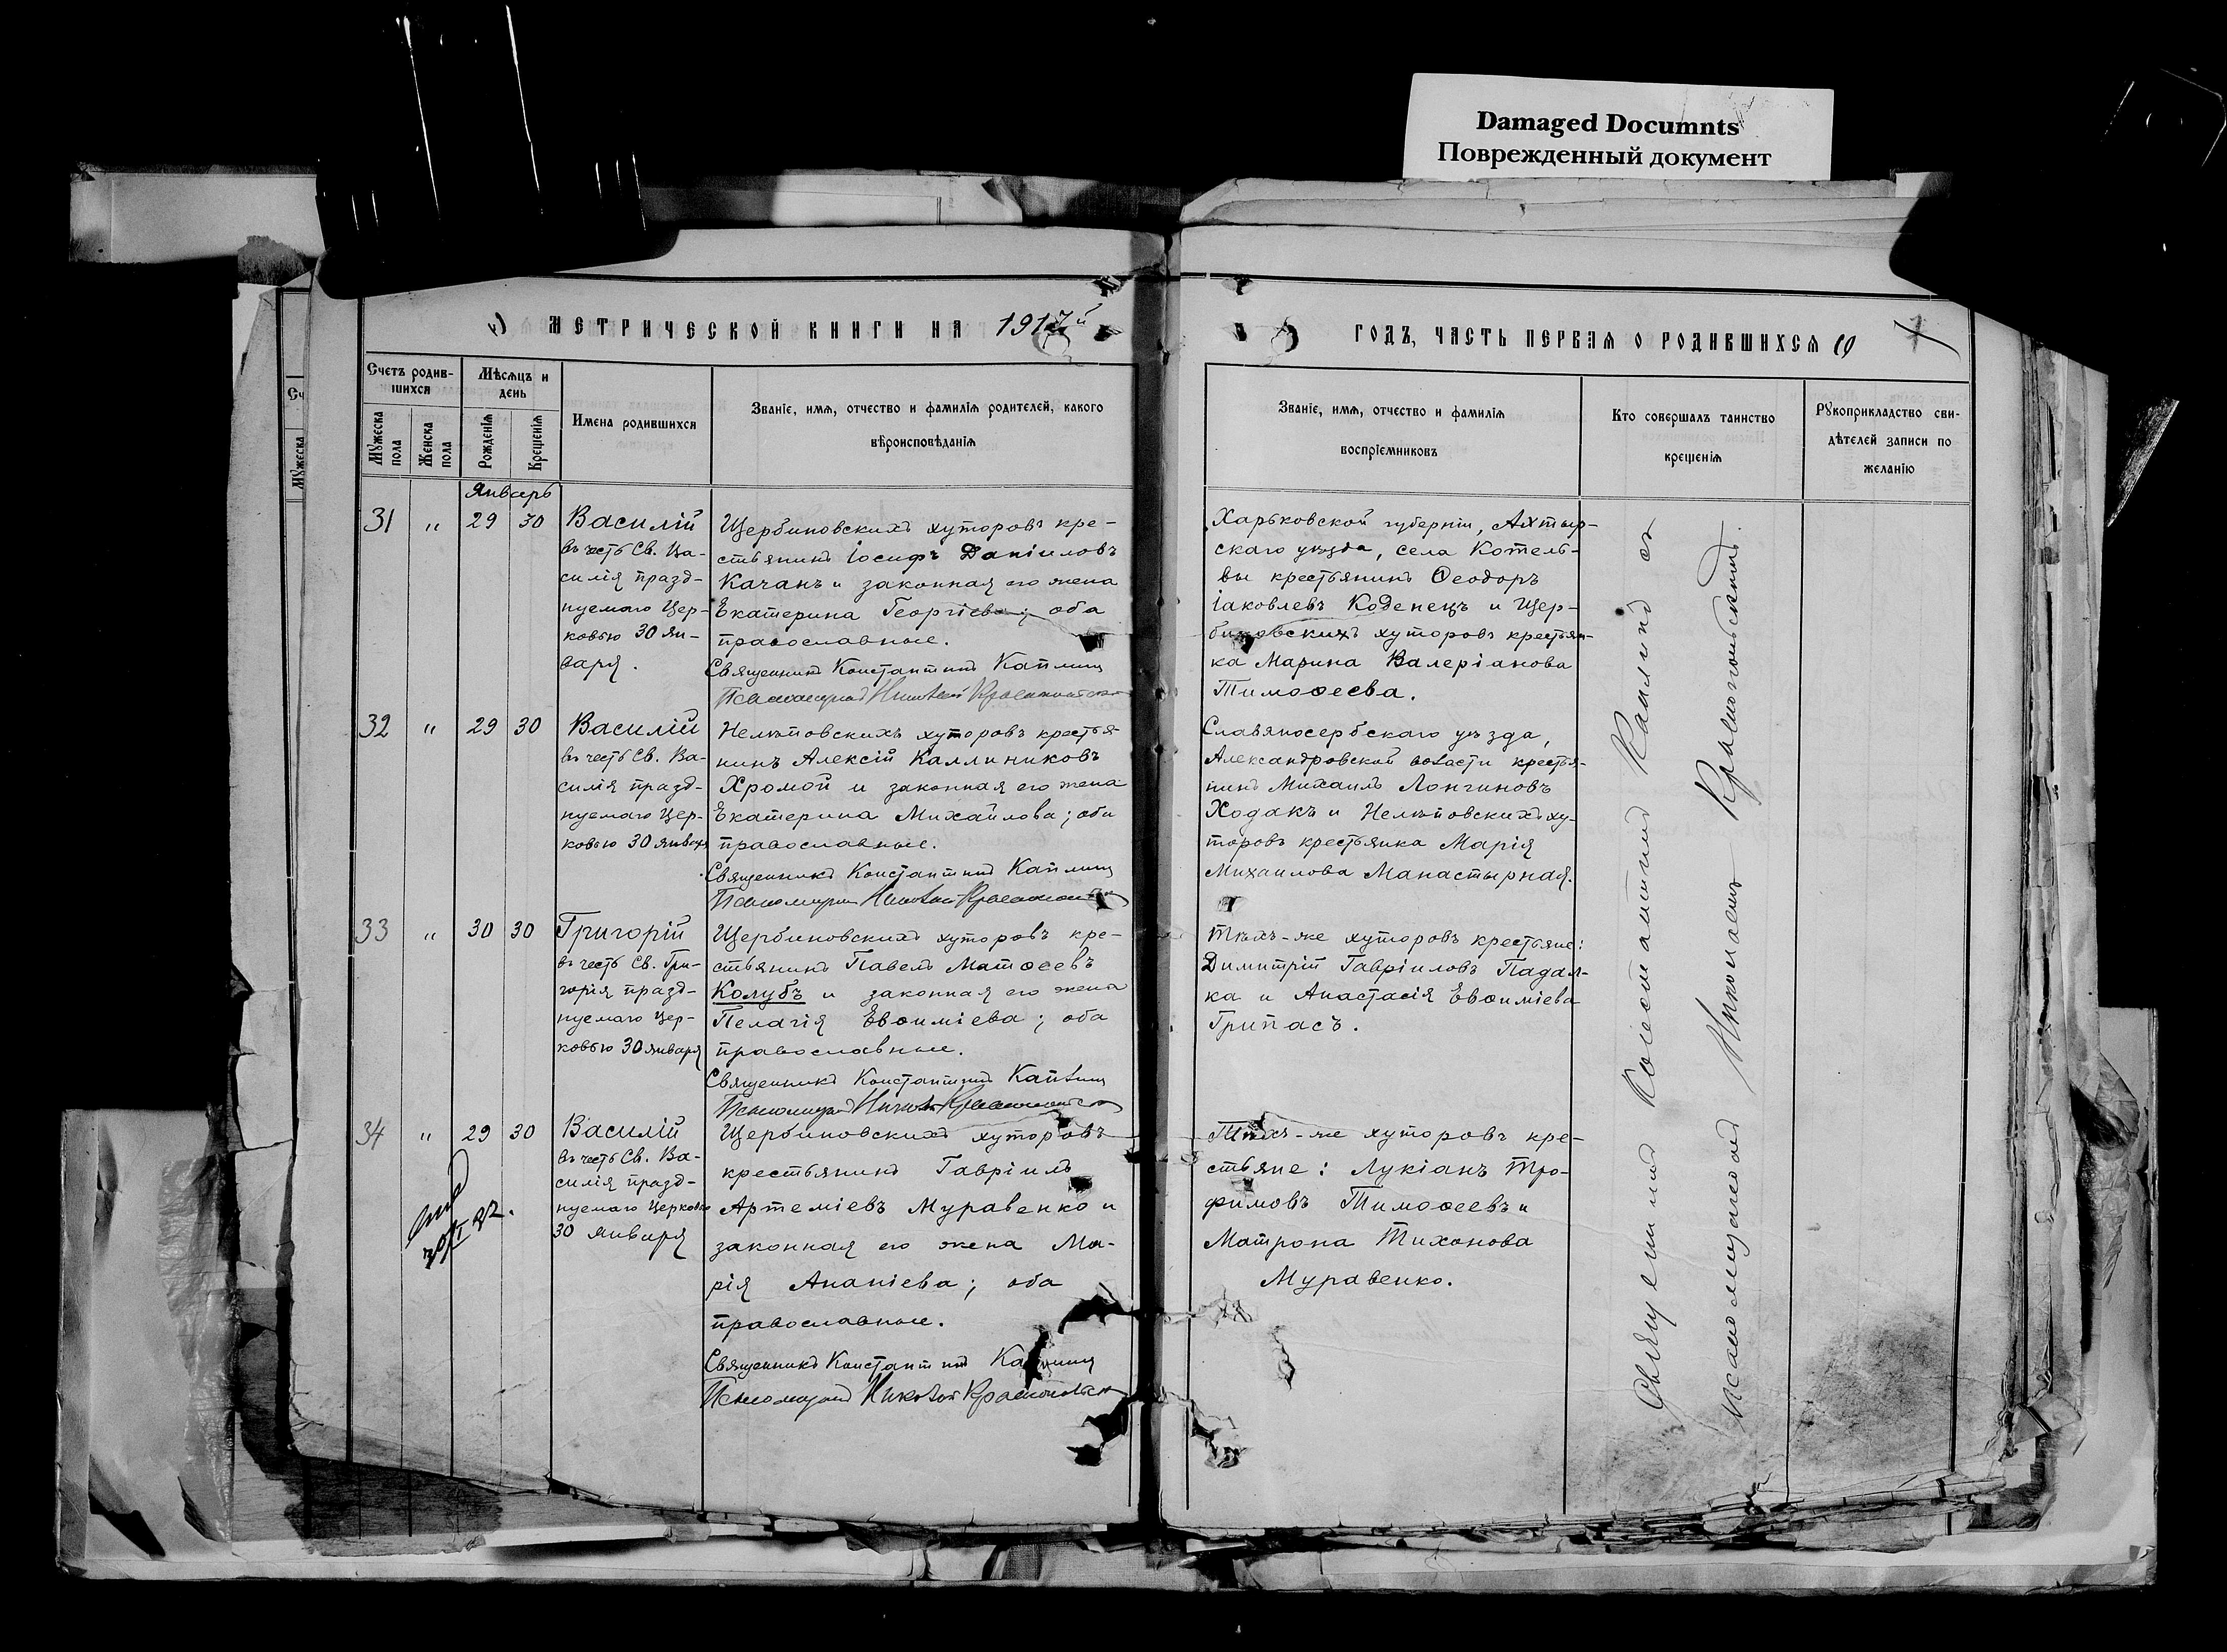 Damaged Documnts
Поврежденный документ
МЕТРИЧЕСКОЙ КНИГИ НА 1917й
ГОДЪ, ЧАСТЬ ПЕРВАЯ О РОДИВШИХСЯ
Счетъ родив-
шихся
Мѣсяцъ и
день
Мужеска
пола
Женска
пола
Рожденія
Крещенія
Имена родившихся
Званіе, имя, отчество и фамилія родителей, какого
вѣроисповѣданія
Званіе, имя, отчество и фамилія
воспріемниковъ
Кто совершалъ таинство
крещенія
Рукоприкладство сви-
дѣтелей записи по
желанію
Январь
31 " 29 30
Василій
въ честь Св. Ва-
силія празд-
нуемаго Цер-
ковью 30 Ян-
варя.
Щербиновскихъ хуторовъ кре-
стьянинъ Іосифъ Даніиловъ
Качанъ и законная его жена
Екатерина Георгіева; оба
православные.
Священникъ Константинъ Каплинъ
Псаломщикъ Николай
Харьковской губерніи, Ахтыр-
скаго уѣзда, села Котель-
вы крестьянинъ Ѳеодоръ
Іаковлевъ Коденецъ и Щер-
биновскихъ хуторовъ крестьян-
ка Марина Валеріанова
Тимоѳеева.
32 " 29 30
Василій
въ честь Св. Ва-
силія празд-
нуемаго Цер-
ковью 30 Января
Нелѣповскихъ хуторовъ крестья-
нинъ Алексій Каллиниковъ
Хромой и законная его жена
Екатерина Михайлова; оба
православные.
Священникъ Константинъ Каплинъ
Псаломщикъ Николай
Славяносербскаго уѣзда,
Александровской волости крестья-
нинъ Михаилъ Лонгиновъ
Ходакъ и Нелѣповскихъ ху-
торовъ крестьянка Марія
Михаилова Манастырная.
33 " 30 30
Григорій
въ честь Св. Гри-
горія празд-
нуемаго Цер-
ковью 30 Января
Щербиновскихъ хуторовъ кре-
стьянинъ Павелъ Матѳеевъ
Колубъ и законная его жена
Пелагія Евѳиміева; оба
православные.
Священникъ Константинъ Каплинъ
Псаломщикъ Николай
Тѣхъ-же хуторовъ крестьяне:
Димитрій Гавріиловъ Падал-
ка и Анастасія Евѳиміева
Грипасъ.
34 " 29 30
Василій
въ честь Св. Ва-
силія празд-
нуемаго Церковью
30 Января
Щербиновскихъ хуторовъ
крестьянинъ Гавріилъ
Артеміевъ Муравенко и
законная его жена Ма-
рія Ананіева; оба
православные.
Священникъ Константинъ Каплинъ
Псаломщикъ Николай
Тѣхъ-же хуторовъ кре-
стьяне: Лукіанъ Тро-
фимовъ Тимоѳеевъ и
Матрона Тихонова
Муравенко.
Священникъ Константинъ Каплинъ съ
Псаломщикомъ Николаемъ